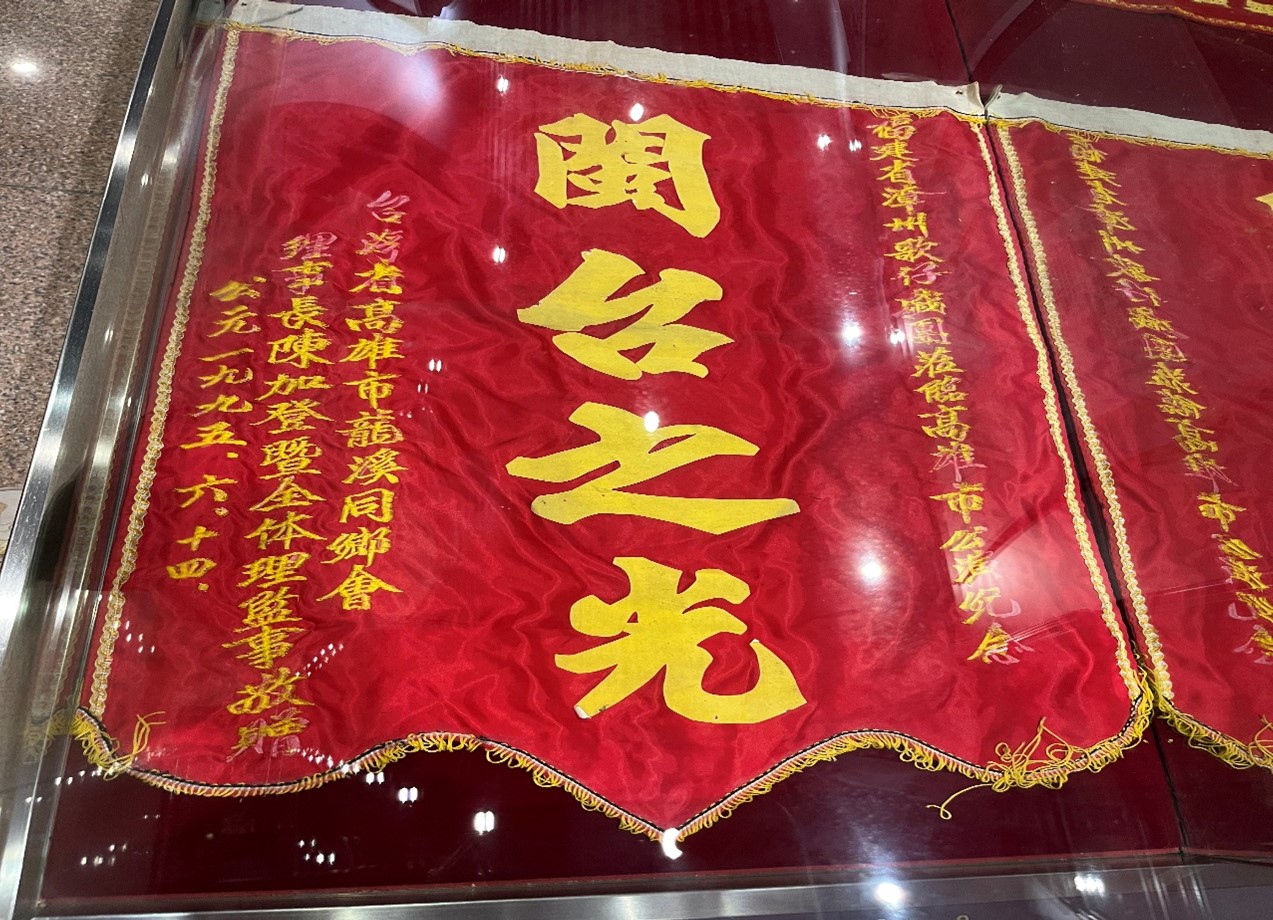 福建省漳州歌仔戲團蒞臨高雄市公演紀念
閩台之光
台灣省高雄市龍溪同鄉會
理事長陳加登暨全体理監事敬贈
公元一九九五.六.十四.